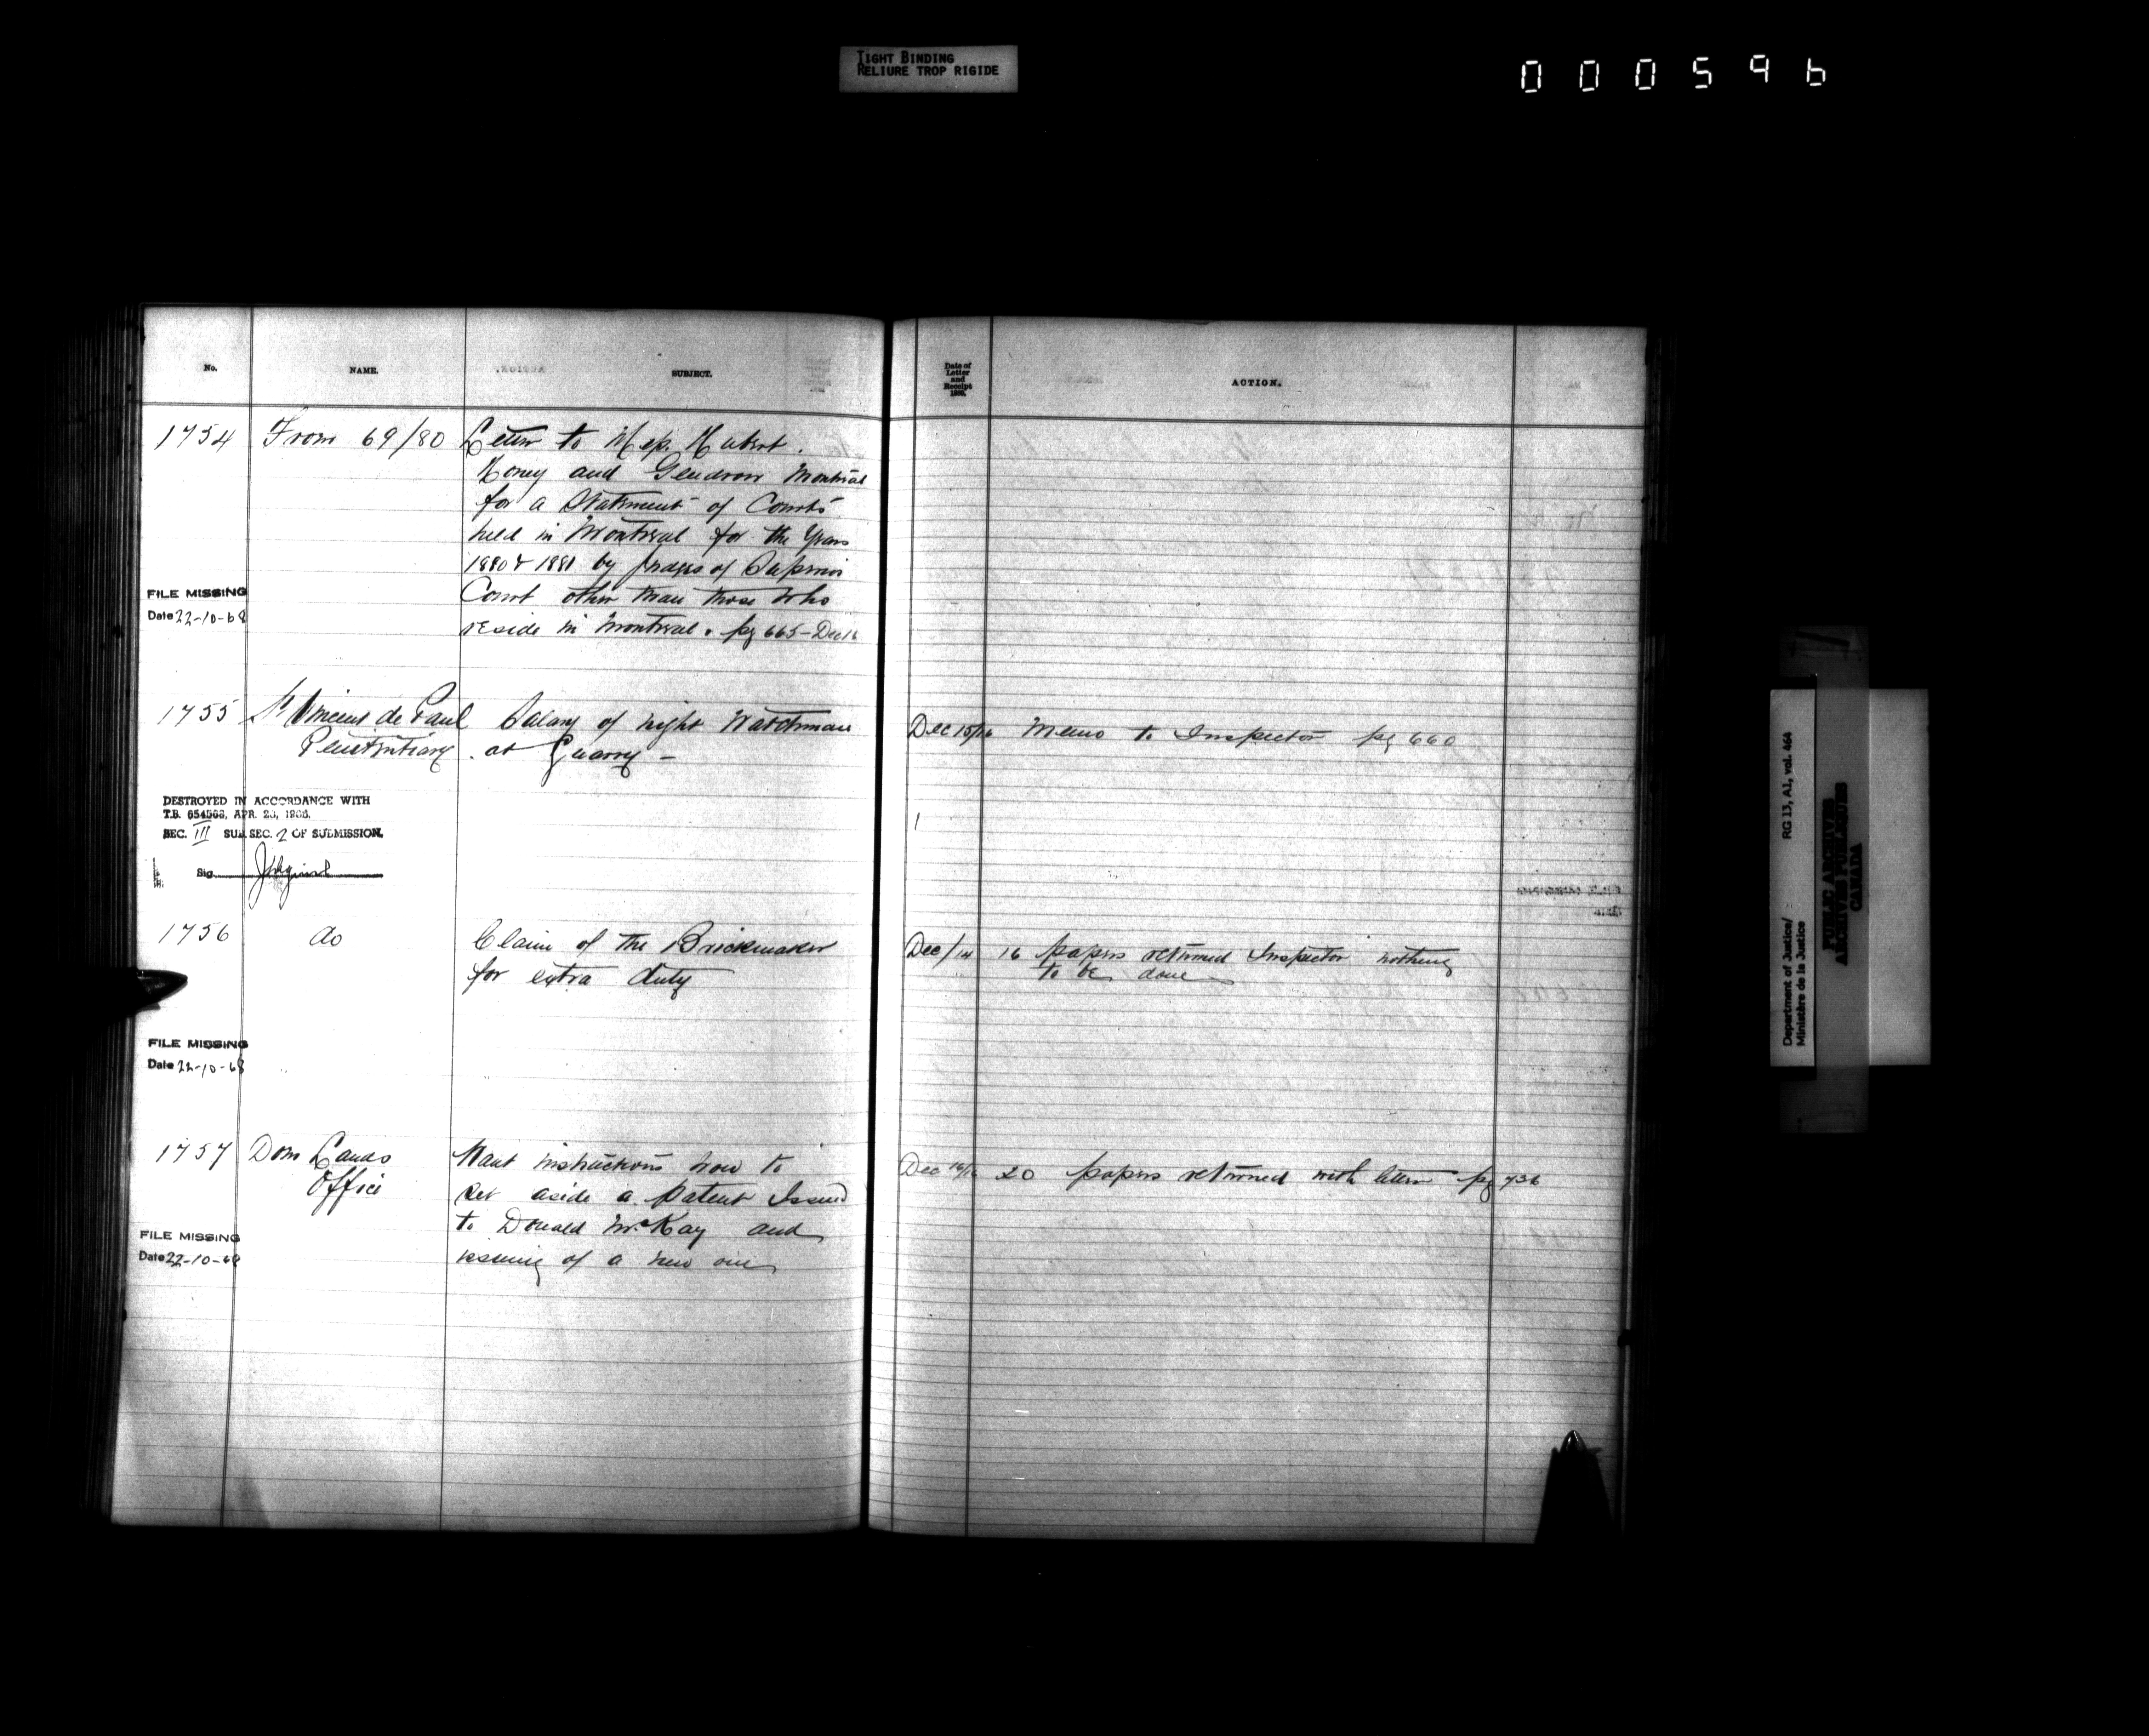 TIGHT BINDING
RELIURE TROP RIGIDE
000596
No.
NAME.
SUBJECT.
Date of
Letter
and
Receipt
ACTION.
1754 From 69/80 Letter to Mess. Hubert.
Honey and Gendron Montreal
for a Statement of Courts
held in Montreal for the Years
1880 & 1881 by Judges of Superior
Court other than those who
reside in Montreal. pg 665 - Dec 16
FILE MISSING
Date 22-10-68
1755 St Vincent de Paul Salary of night Watchman Dec 15/16 Memo to Inspector pg 660
Penitentiary. at Quarry -
DESTROYED IN ACCORDANCE WITH
T.B. 654563, APR. 23,
SEC. III SUB SEC. 2 OF SUBMISSION.
Sig.
1756 do Claim of the Brickmaker Dec/14 16 papers returned Inspector nothing
for extra duty to be done
FILE MISSING
Date 22-10-68
1757 Dom Lands Want instructions how to Dec 16/16 20 papers returned with letter pg 736
Office set aside a patent Issued
to Donald McKay and
issuing of a new one
FILE MISSING
Date 22-10-68
Department of Justice/
Ministère de la Justice
RG 13, A1, vol. 464
PUBLIC ARCHIVES
ARCHIVES PUBLIQUES
CANADA